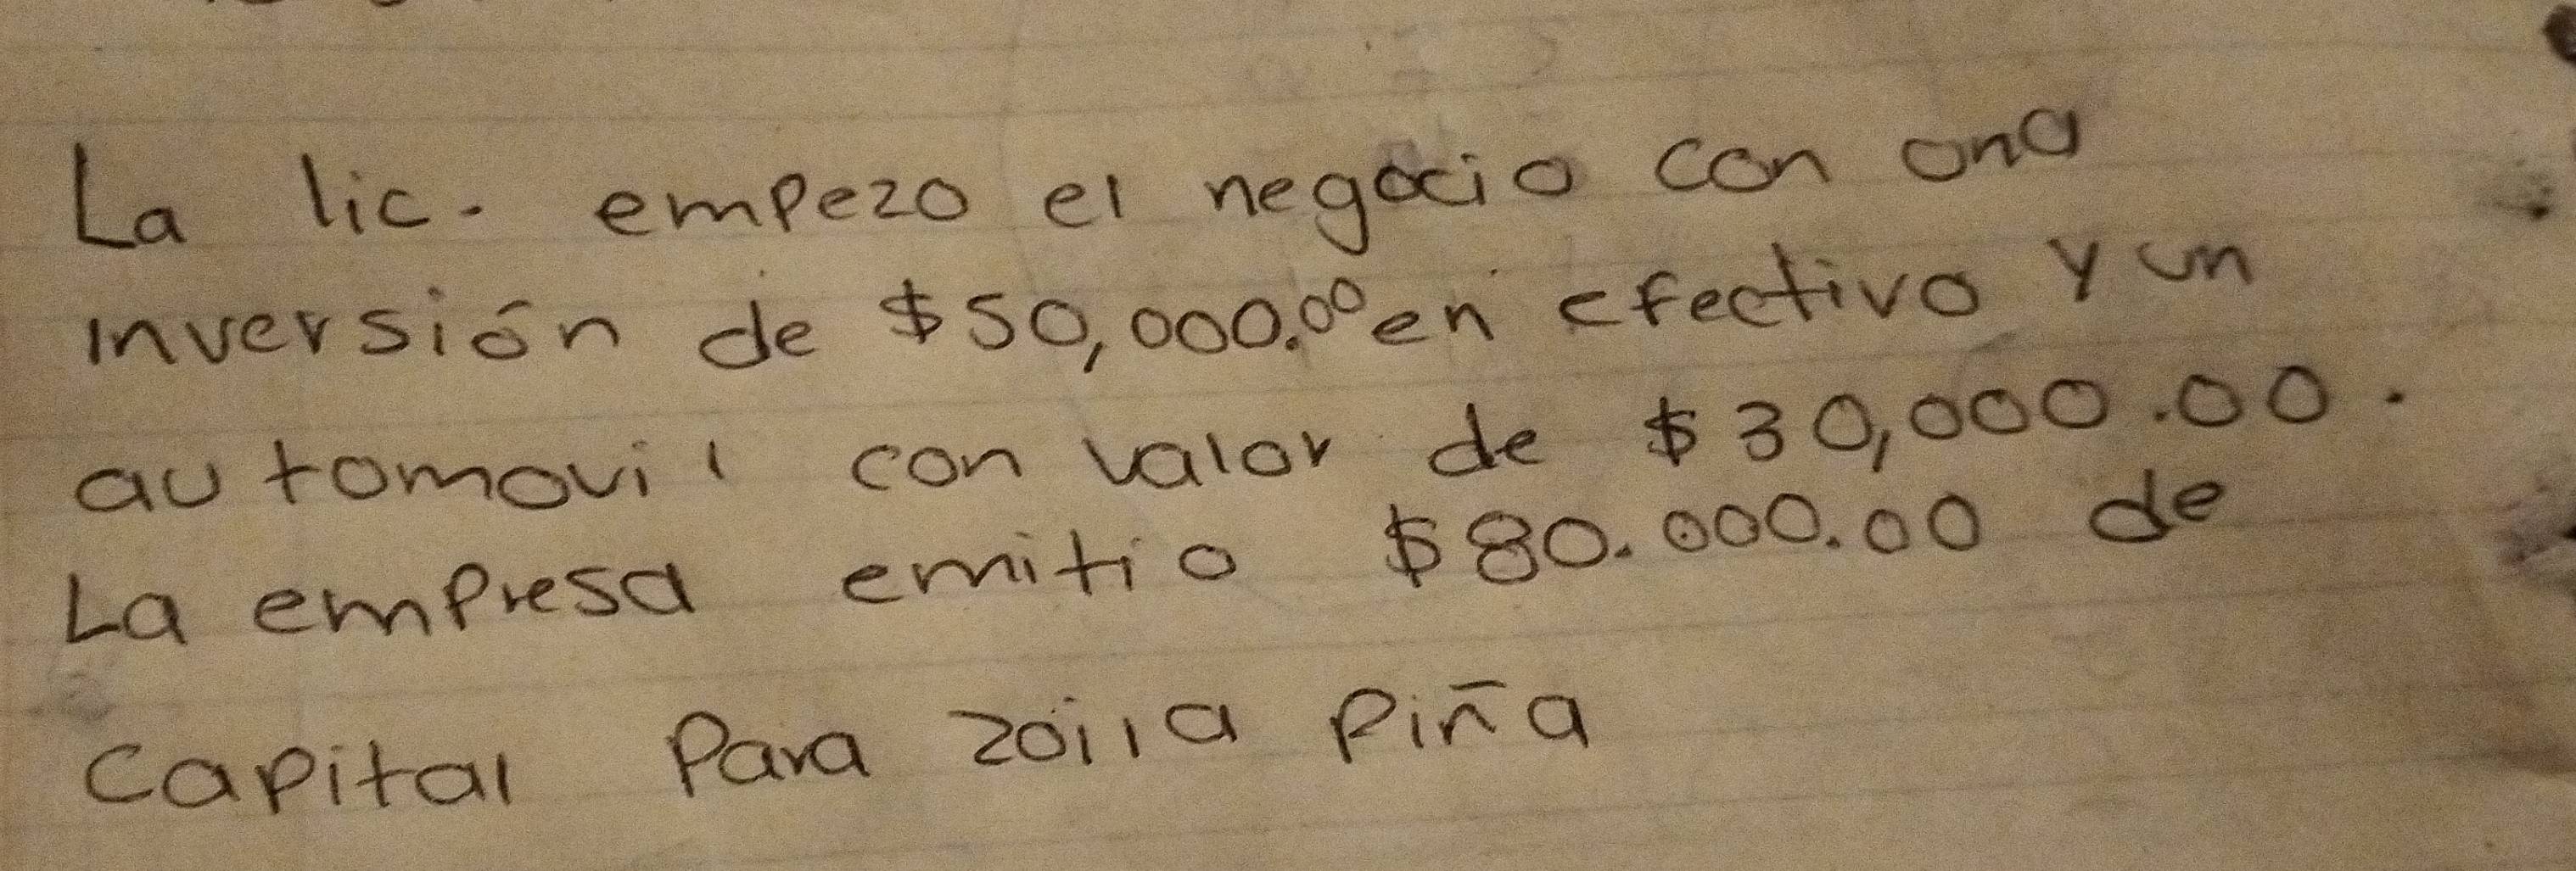 La lic. empezo el negocio con una
inversión de $50,000.00 en efectivo y un
automovil con valor de $30,000.00.
La empresa emitio $80.000.00 de
capital Para zoila Piña